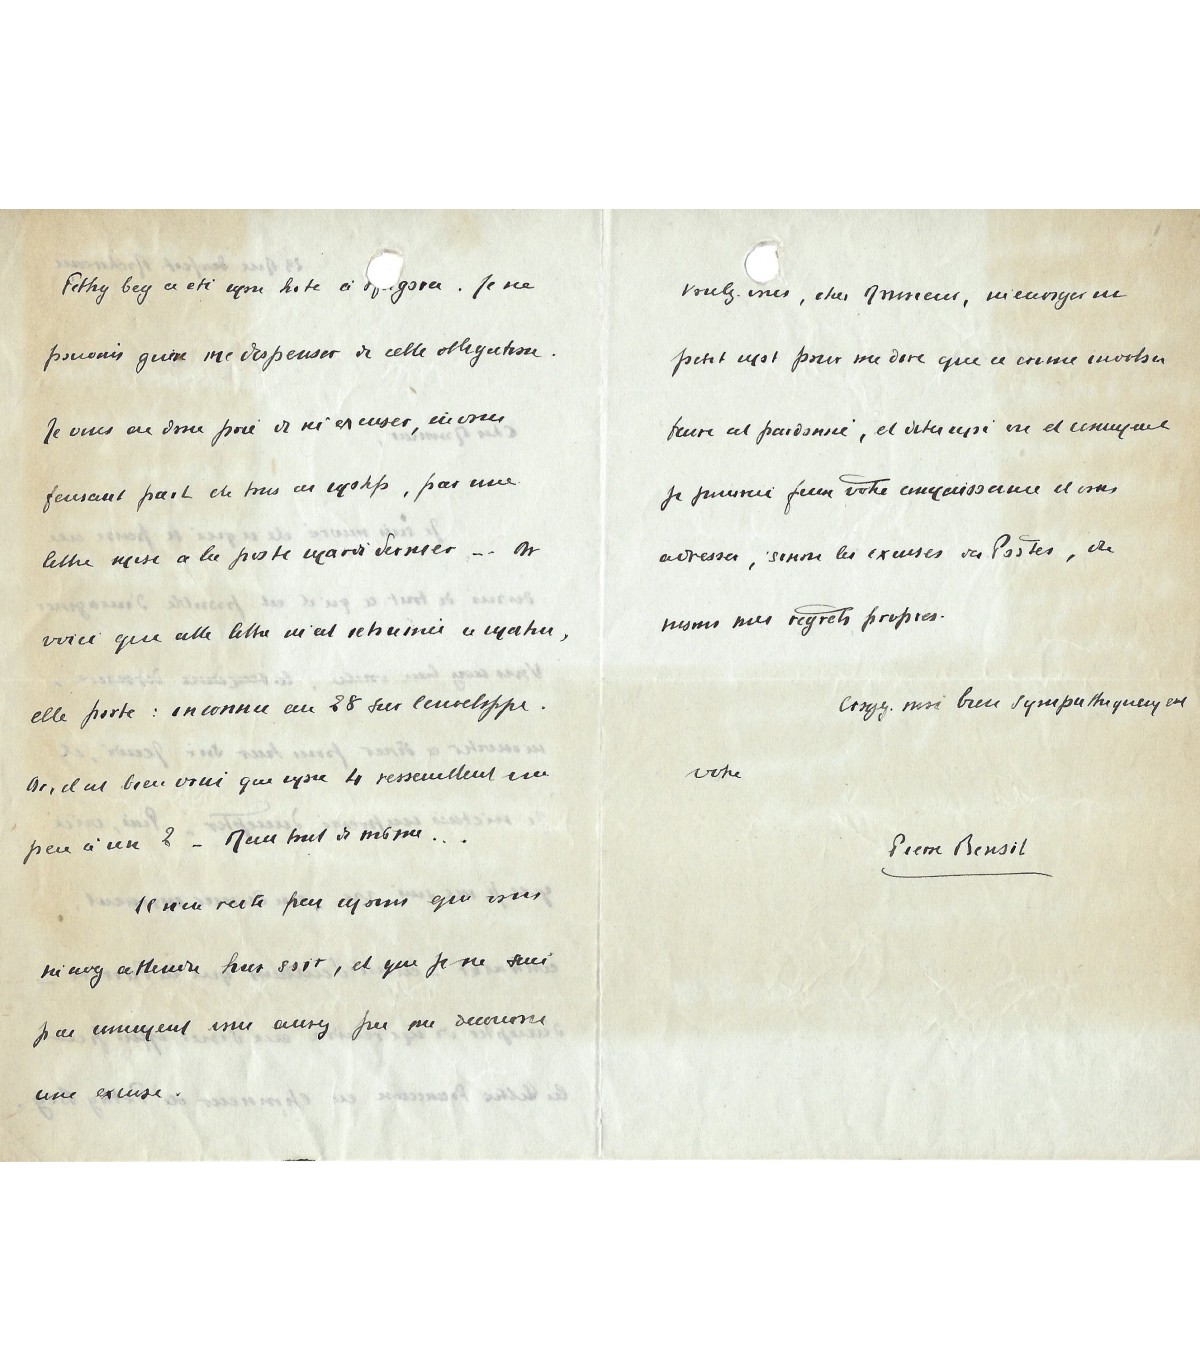 Fethy bey a été mon hôte à Angora. Je ne
pouvais guère me dispenser de cette obligation.
Je vous ai donc prié de m'excuser, en vous
faisant part de tous ces motifs, par une
lettre mise à la poste mardi dernier --- Or
voici que cette lettre m'est retournée ce matin,
elle porte : inconnu au 28 sur l'enveloppe.
Or, il est bien vrai que mon 4 ressemblent un
peu à un 8 - Mais tout de même...
Il n'en reste pas moins que vous
m'avez attendu hier soir, et que je ne sais
pas comment vous aurez pu me découvrir
une excuse.
Voulez-vous, cher Monsieur, m'envoyer un
petit mot pour me dire que ce crime involon
taire est pardonné, et dites-moi où et comment
je pourrai faire votre connaissance et vous
adresser, sinon les excuses des Postes, du
moins mes regrets propres.
Croyez-moi bien sympathiquement
votre
Pierre Benoit